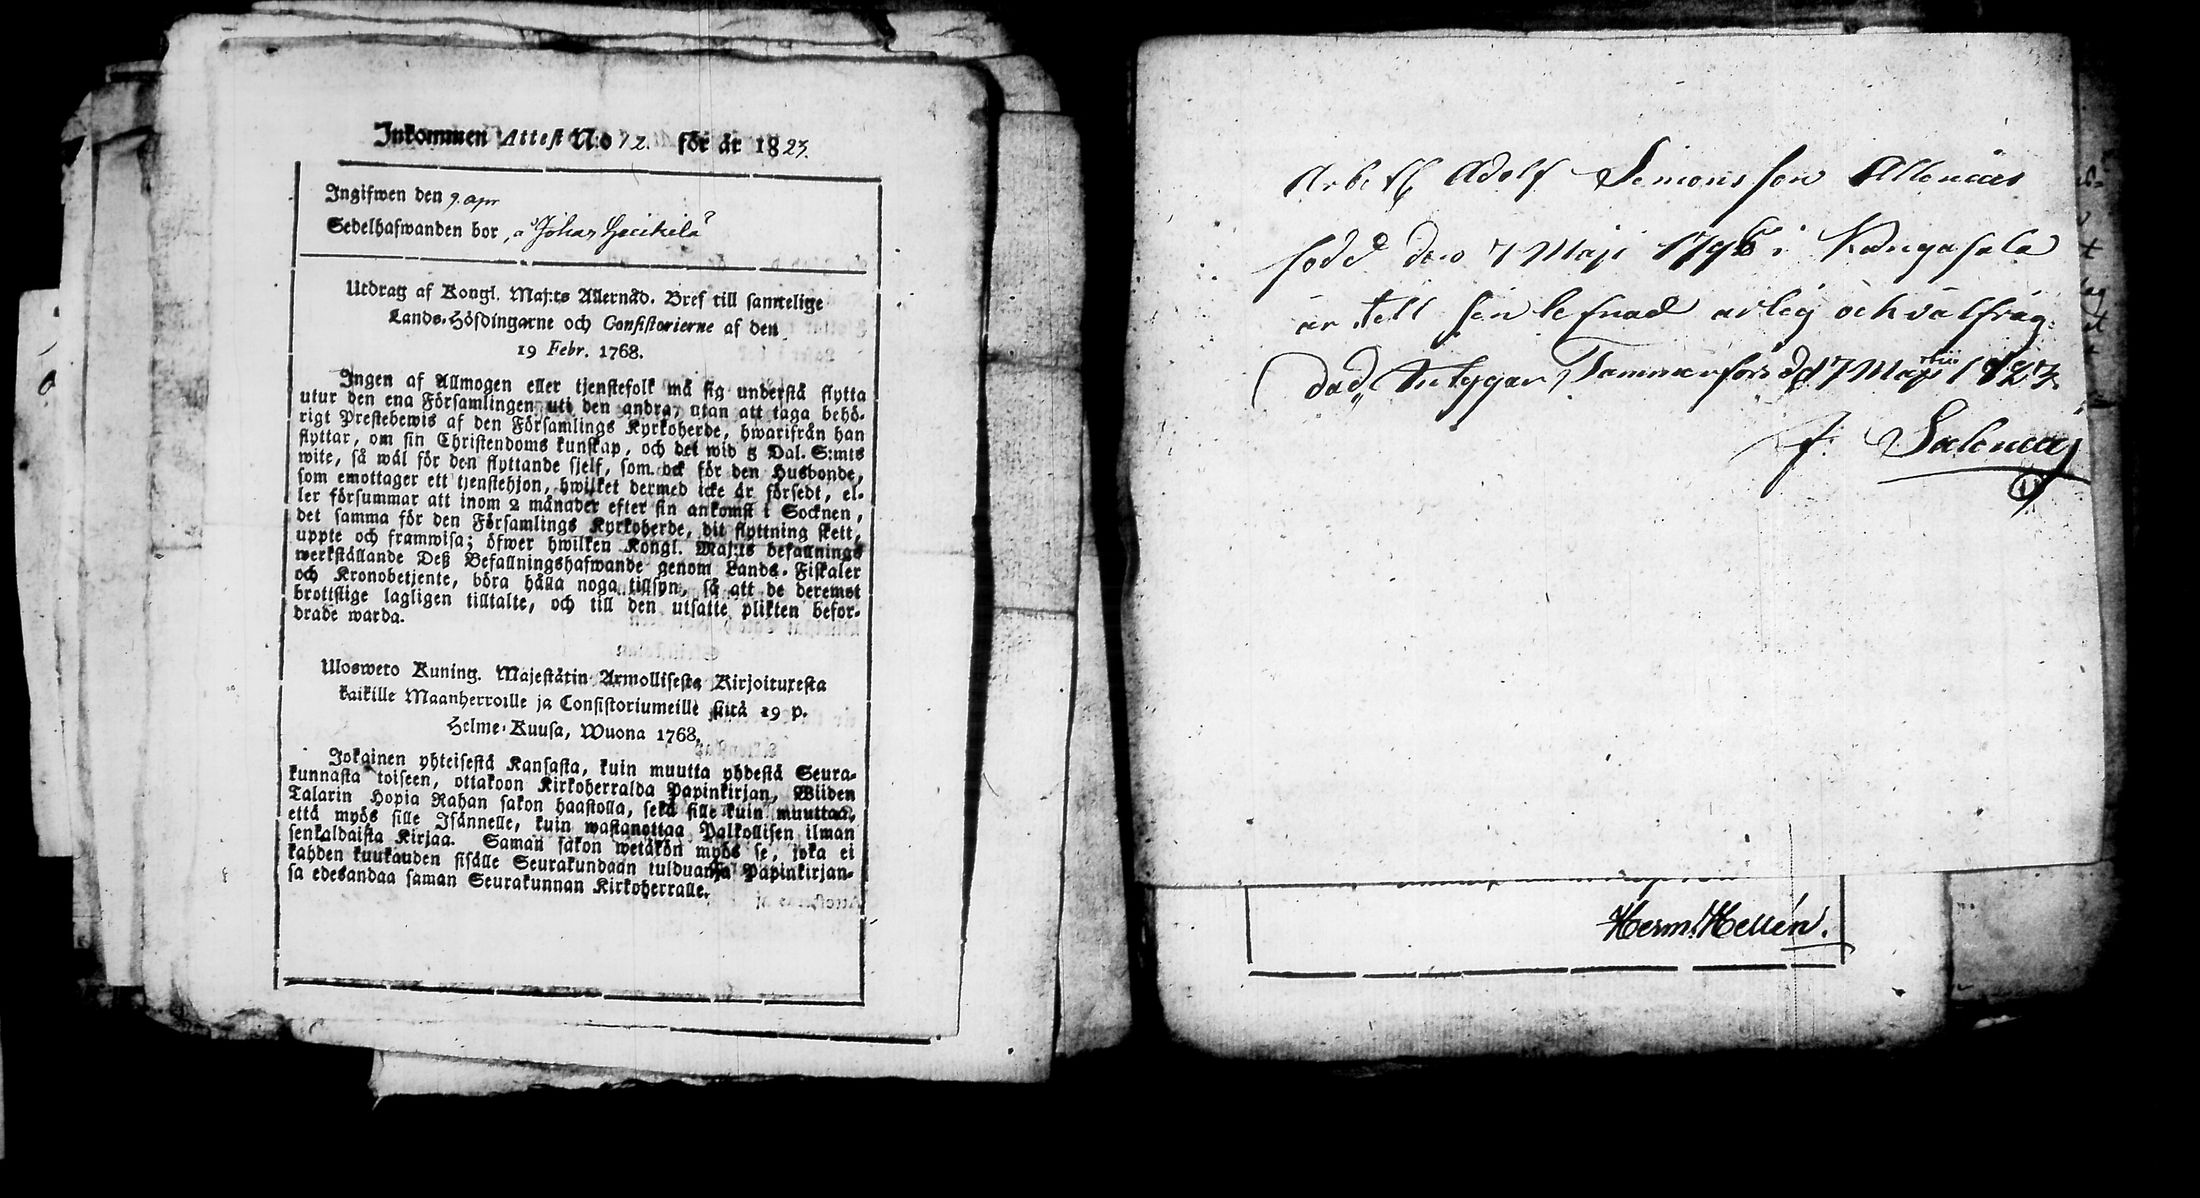 Inkommen Attest N:o 12. för år 1823.
Ingifwen den 9. apr
Sedelhafwanden bor, å Johas
Utdrag af Kongl. Maj:ts Allernåd. Bref till samtelige
Lands-Höfdingarne och Consistorierne af den
19 Febr. 1768.
Ingen af Allmogen eller tjenstefolk må sig understå flytta
utur den ena Församlingen uti den andra, utan att taga behö-
rigt Prestebewis af den Församlings Kyrkoherde, hwarifrån han
flyttar, om sin Christendoms kunskap, och det wid 5 Dal. S:mts
wite, så wäl för den flyttande sjelf, som ock för den Husbonde,
som emottager ett tjenstehjon, hwilket dermed icke är försedt, el-
ler försummar att inom 2 månader efter sin ankomst i Socknen,
det samma för den Församlings Kyrkoherde, dit flyttning skett,
uppte och framwisa; öfwer hwilken Kongl. Maj:ts befallnings
werkställande Deß Befallningshafwande genom Lands-Fiskaler
och Kronobetjente, böra hålla noga tillsyn, så att de deremot
brottslige lagligen tilltalte, och till den utsatte plikten befor-
drade warda.
Ulosweto Kuning. Majestätin Armollisesta Kirjoituxesta
kaikille Maanherroille ja Consistoriumeille siitä 19 p.
Helme-Kuusa, Wuona 1768.
Jokainen yhteisestä Kansasta, kuin muutta yhdestä Seura-
kunnasta toiseen, ottakoon Kirkoherralda Papinkirjan, Wiiden
Talarin Hopia Rahan sakon haastolla, sekä sille kuin muuttaa,
että myös sille Isännelle, kuin wastanottaa Palkollisen ilman
senkaldaista Kirjaa. Saman sakon wetäkön myös se, joka ei
kahden kuukauden sisälle Seurakundaan tulduansa Papinkirjan-
sa edesandaa saman Seurakunnan Kirkoherralle.
Adolf Simonsson
född den 7 Maji 1796 i Kangasala
är till sin lefnad ärlig och välfräg-
dad, intygar Tammerfors d 17 Martii 1823
J. Salonius
Herm. Hellén.